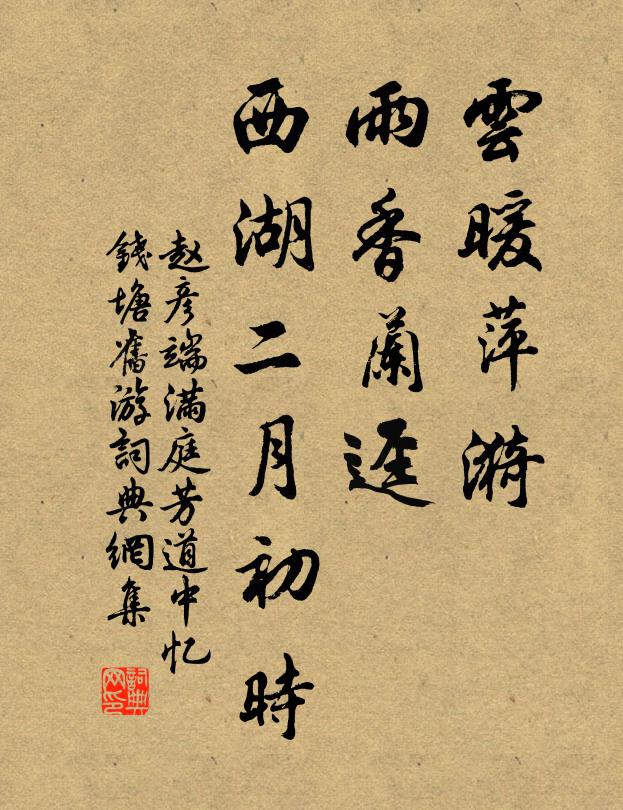 雲暖萍漪
雨香蘭逕
西湖二月初時
赵彦端满庭芳道中忆
錢塘舊游詞典網集
詞典网印